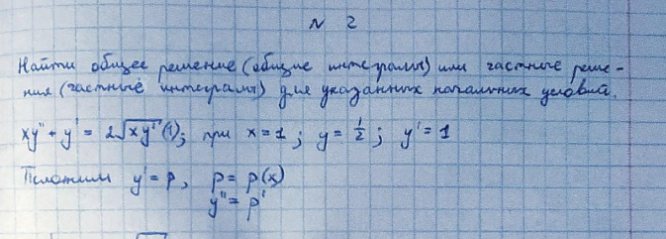 № 2
Найти общее решение (общие интегралы) или частные реше-
ния (частные интегралы) для указанных начальных условий.
xy" + y' = 2√xy' (1); при x = 1; y = 1/2; y' = 1
Положим y' = p, p = p(x)
y" = p'